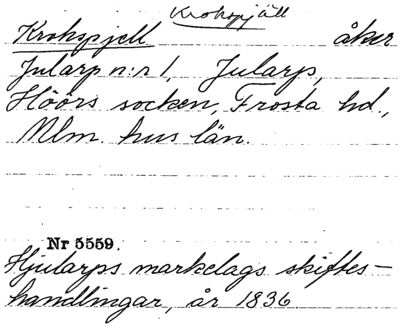 Krokspjäll
Krokspjell åker
Jularp n:r 1, Jularp,
Höörs socken, Frosta hd.,
Mlm. hus län.
Nr 5559.
Hjularps markelags skiftes-
handlingar, år 1836